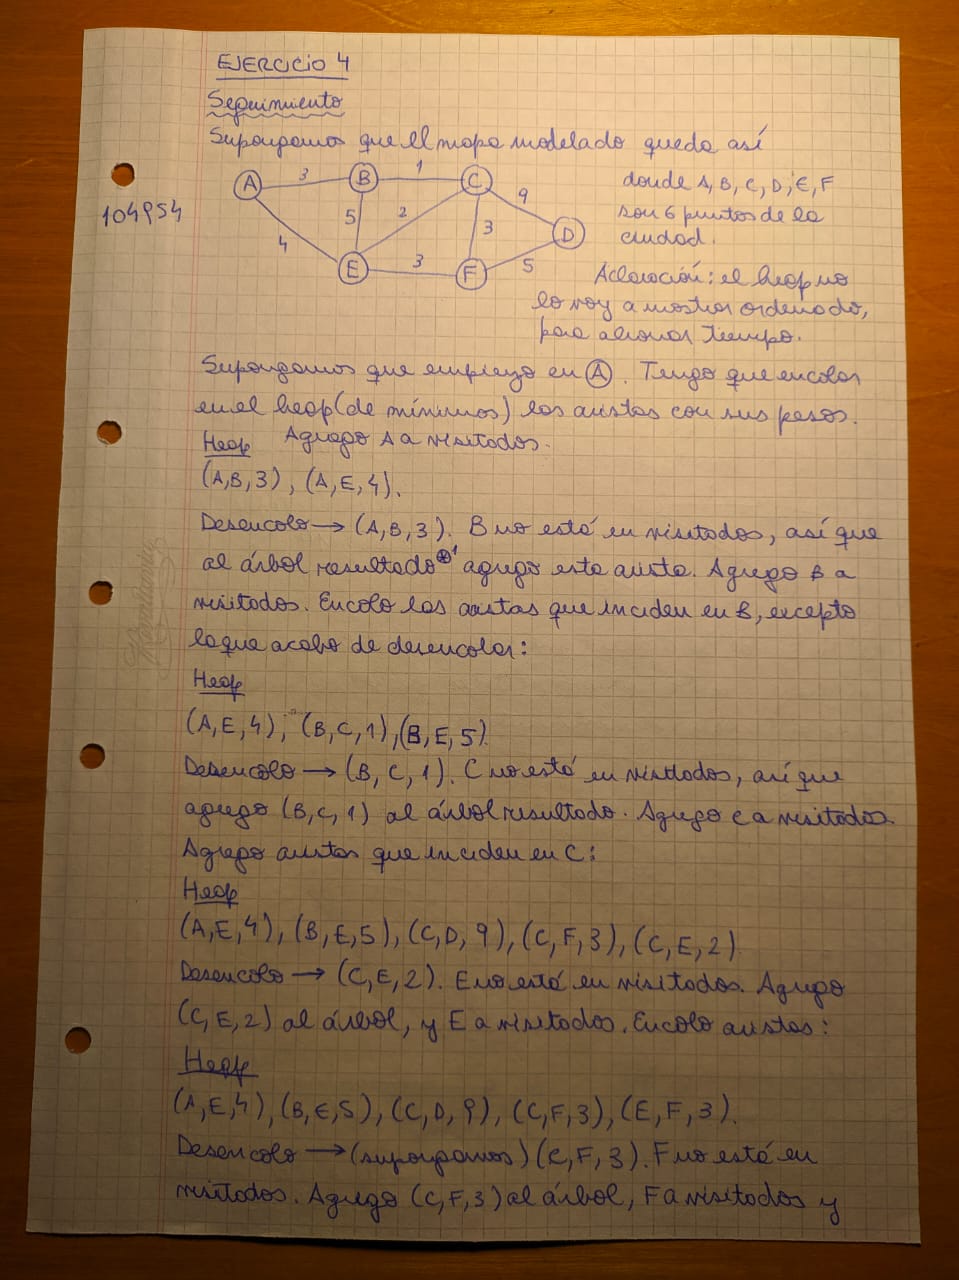 EJERCICIO 4
Seguimiento
Supongamos que el mapa modelado queda así
A 3 B 1 C 9 D
5 2 3
4 E 3 F 5
donde A, B, C, D, E, F
son 6 puntos de la
ciudad.
104954
Aclaración: el heap no
lo voy a mostrar ordenado,
para ahorrar tiempo.
Supongamos que empiezo en A. Tengo que encolar
en el heap (de mínimos) las aristas con sus pesos.
Heap Agrego A a visitados.
(A,B,3), (A,E,4).
Desencolo → (A,B,3). B no está en visitados, así que
al árbol resultado⊛¹ agrego esta arista. Agrego B a
visitados. Encolo las aristas que inciden en B, excepto
la que acabo de desencolar:
Heap
(A,E,4), (B,C,1), (B,E,5).
Desencolo → (B,C,1). C no está en visitados, así que
agrego (B,C,1) al árbol resultado. Agrego C a visitados.
Agrego aristas que inciden en C:
Heap
(A,E,4), (B,E,5), (C,D,9), (C,F,3), (C,E,2).
Desencolo → (C,E,2). E no está en visitados. Agrego
(C,E,2) al árbol, y E a visitados. Encolo aristas:
Heap
(A,E,4), (B,E,5), (C,D,9), (C,F,3), (E,F,3).
Desencolo → (supongamos) (C,F,3). F no está en
visitados. Agrego (C,F,3) al árbol, F a visitados y